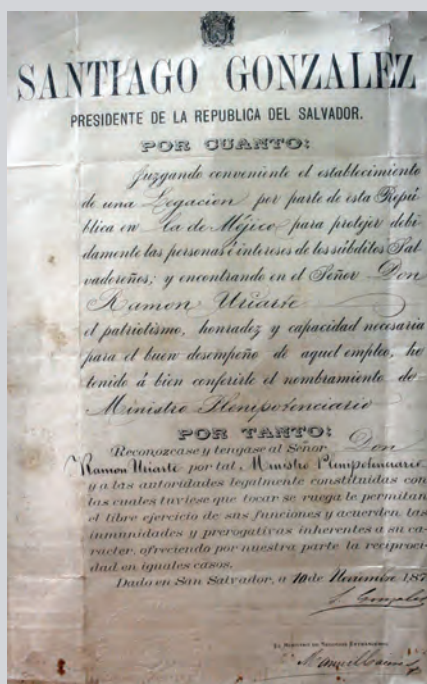 SANTIAGO GONZALEZ
PRESIDENTE DE LA REPUBLICA DEL SALVADOR.
POR CUANTO:
Juzgando conveniente el establecimiento
de una Legacion por parte de esta Repú-
blica en la de Méjico para protejer debi-
damente las personas é intereses de los súbditos Sal-
vadoreños; y encontrando en el Señor Don
Ramon Uriarte
el patriotismo, honradez y capacidad necesaria
para el buen desempeño de aquel empleo, he
tenido á bien conferirle el nombramiento de
Ministro Plenipotenciario
POR TANTO:
Reconozcase y tengase al Señor Don
Ramon Uriarte por tal Ministro Plenipotenciario
y a las autoridades legalmente constituidas con
las cuales tuviese que tocar se ruega le permitan
el libre ejercicio de sus funciones y acuerden las
inmunidades y prerogativas inherentes a su ca-
racter, ofreciendo por nuestra parte la reciproci-
dad en iguales casos.
Dado en San Salvador, a 10 de Noviembre 187
S. Gonzalez
EL MINISTRO DE NEGOCIOS EXTRANGEROS
Manuel